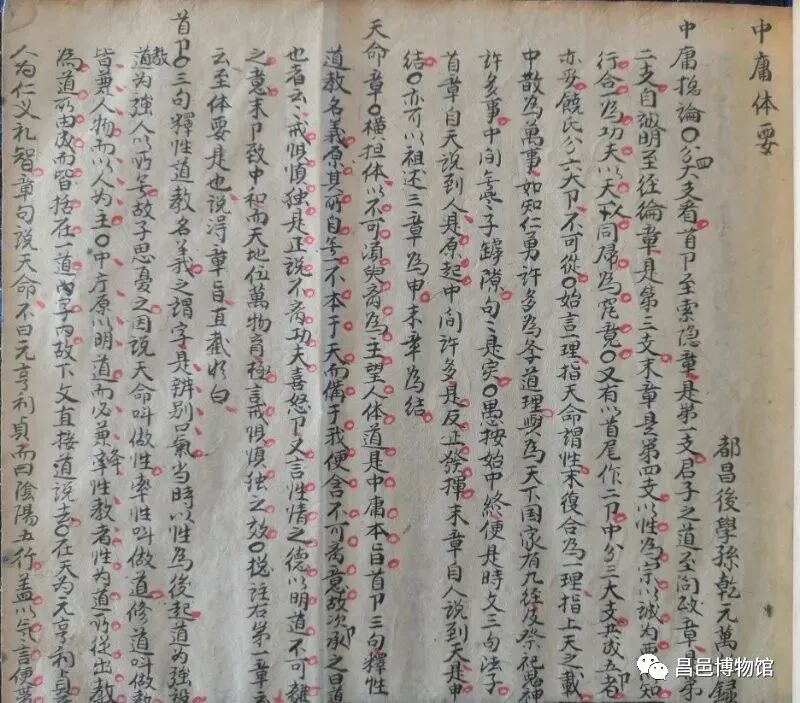 中庸体要
都昌後學孫乾元萬
中庸揔論○分四大支看首卩至索隐章是第一支君子之道至问政章是第
二支自誠明至经綸章是第三支末章是第四支以性為宗以誠为要以知
行合一為功夫以天人同歸為究竟○又有以首尾作二卩中分三大支共成五者
亦妥饒氏分六大卩不可從○始言一理指天命謂性末復合為一理指上天之載
中散為萬事如知仁勇許多為孝道理與為天下国家有九经及祭祀鬼神
許多事中间無子罅隙句々是实○愚按始中終便是時文三句法子
首章自天说到人是原起中间許多是反正發揮末章自人説到天是申
结○亦可以祖述三章為申末章為结
天命章○横担体以不可須臾离為主望人体道是中庸本旨首卩三句釋性
道教名義原其所自無不本于天而備于我便含不可离意故次承之曰道
也者云々戒惧慎独是正说不离功夫喜怒卩又言性情之德以明道不可離
之意末卩致中和而天地位萬物育極言戒惧慎独之效○揔註右第一章云
云至体要是也说得章旨直截明白
首卩○三句釋性道教名義之謂字是辨别口氣当時以性為後起道为强設
教道为强人以所無故子思憂之因説天命叫做性率性叫做道修道叫做教
皆兼人物而以人为主○中庸原以明道而必兼率性教者性为道所從出教
為道所由成而皆括在一道内字内故下文直接道説去○在天为元亨利貞
人为仁义礼智章句说天命不曰元亨利貞而曰陰陽五行盖以气言便兼
昌邑博物馆